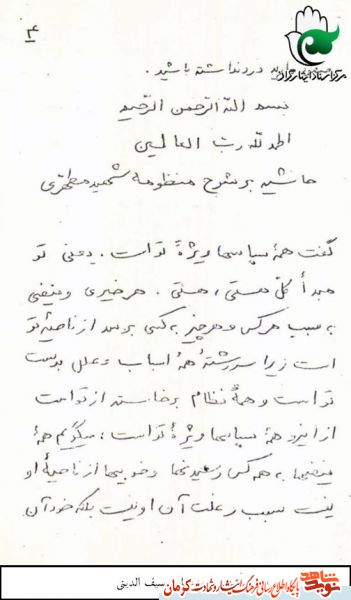 ۴
مرکز اسناد ایثارگران
درد نداشته باشید.
بسم الله الرحمن الرحیم
الحمد لله رب العالمین
حاشیه بر شرح منظومه شهید مطهری
گفت همهٔ سپاسها ویژهٔ تو است. یعنی تو
مبدأ کل هستی، هستی. هر خیری و فیضی
به سبب هر کس و هر چیز به کسی برسد از ناحیهٔ تو
است زیرا سررشتهٔ همهٔ اسباب و علل بدست
تو است و همهٔ نظام برخاسته از تو است
از اینرو همهٔ سپاسها ویژهٔ تو است، میگویم همهٔ
فیضها به هر کس رسید نعمتها و خوبیها از ناحیهٔ او
نیست سبب و علت آن او نیست بلکه خود آن
سیف الدینی
نوید شاهد
پایگاه اطلاع رسانی فرهنگ ایثار و شهادت کرمان